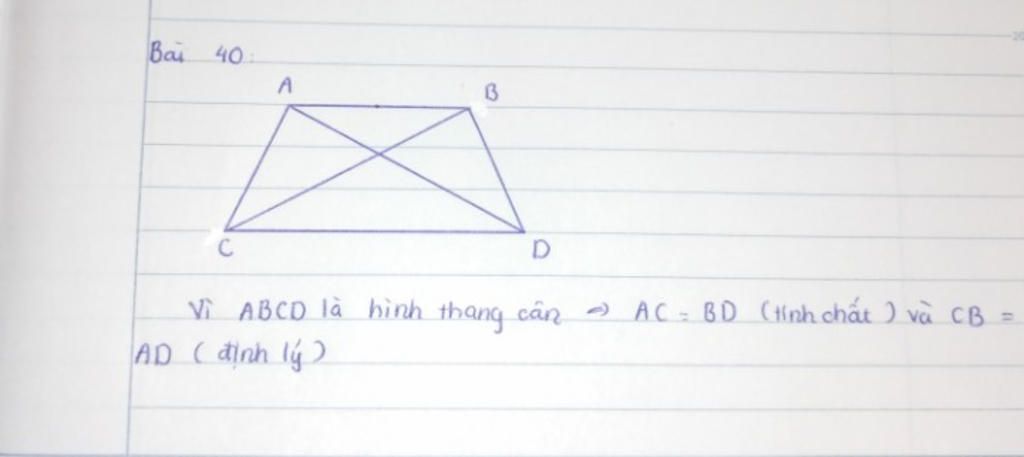 Bài 40:
A B
C D
Vì ABCD là hình thang cân => AC = BD (tính chất) và CB =
AD (định lý)